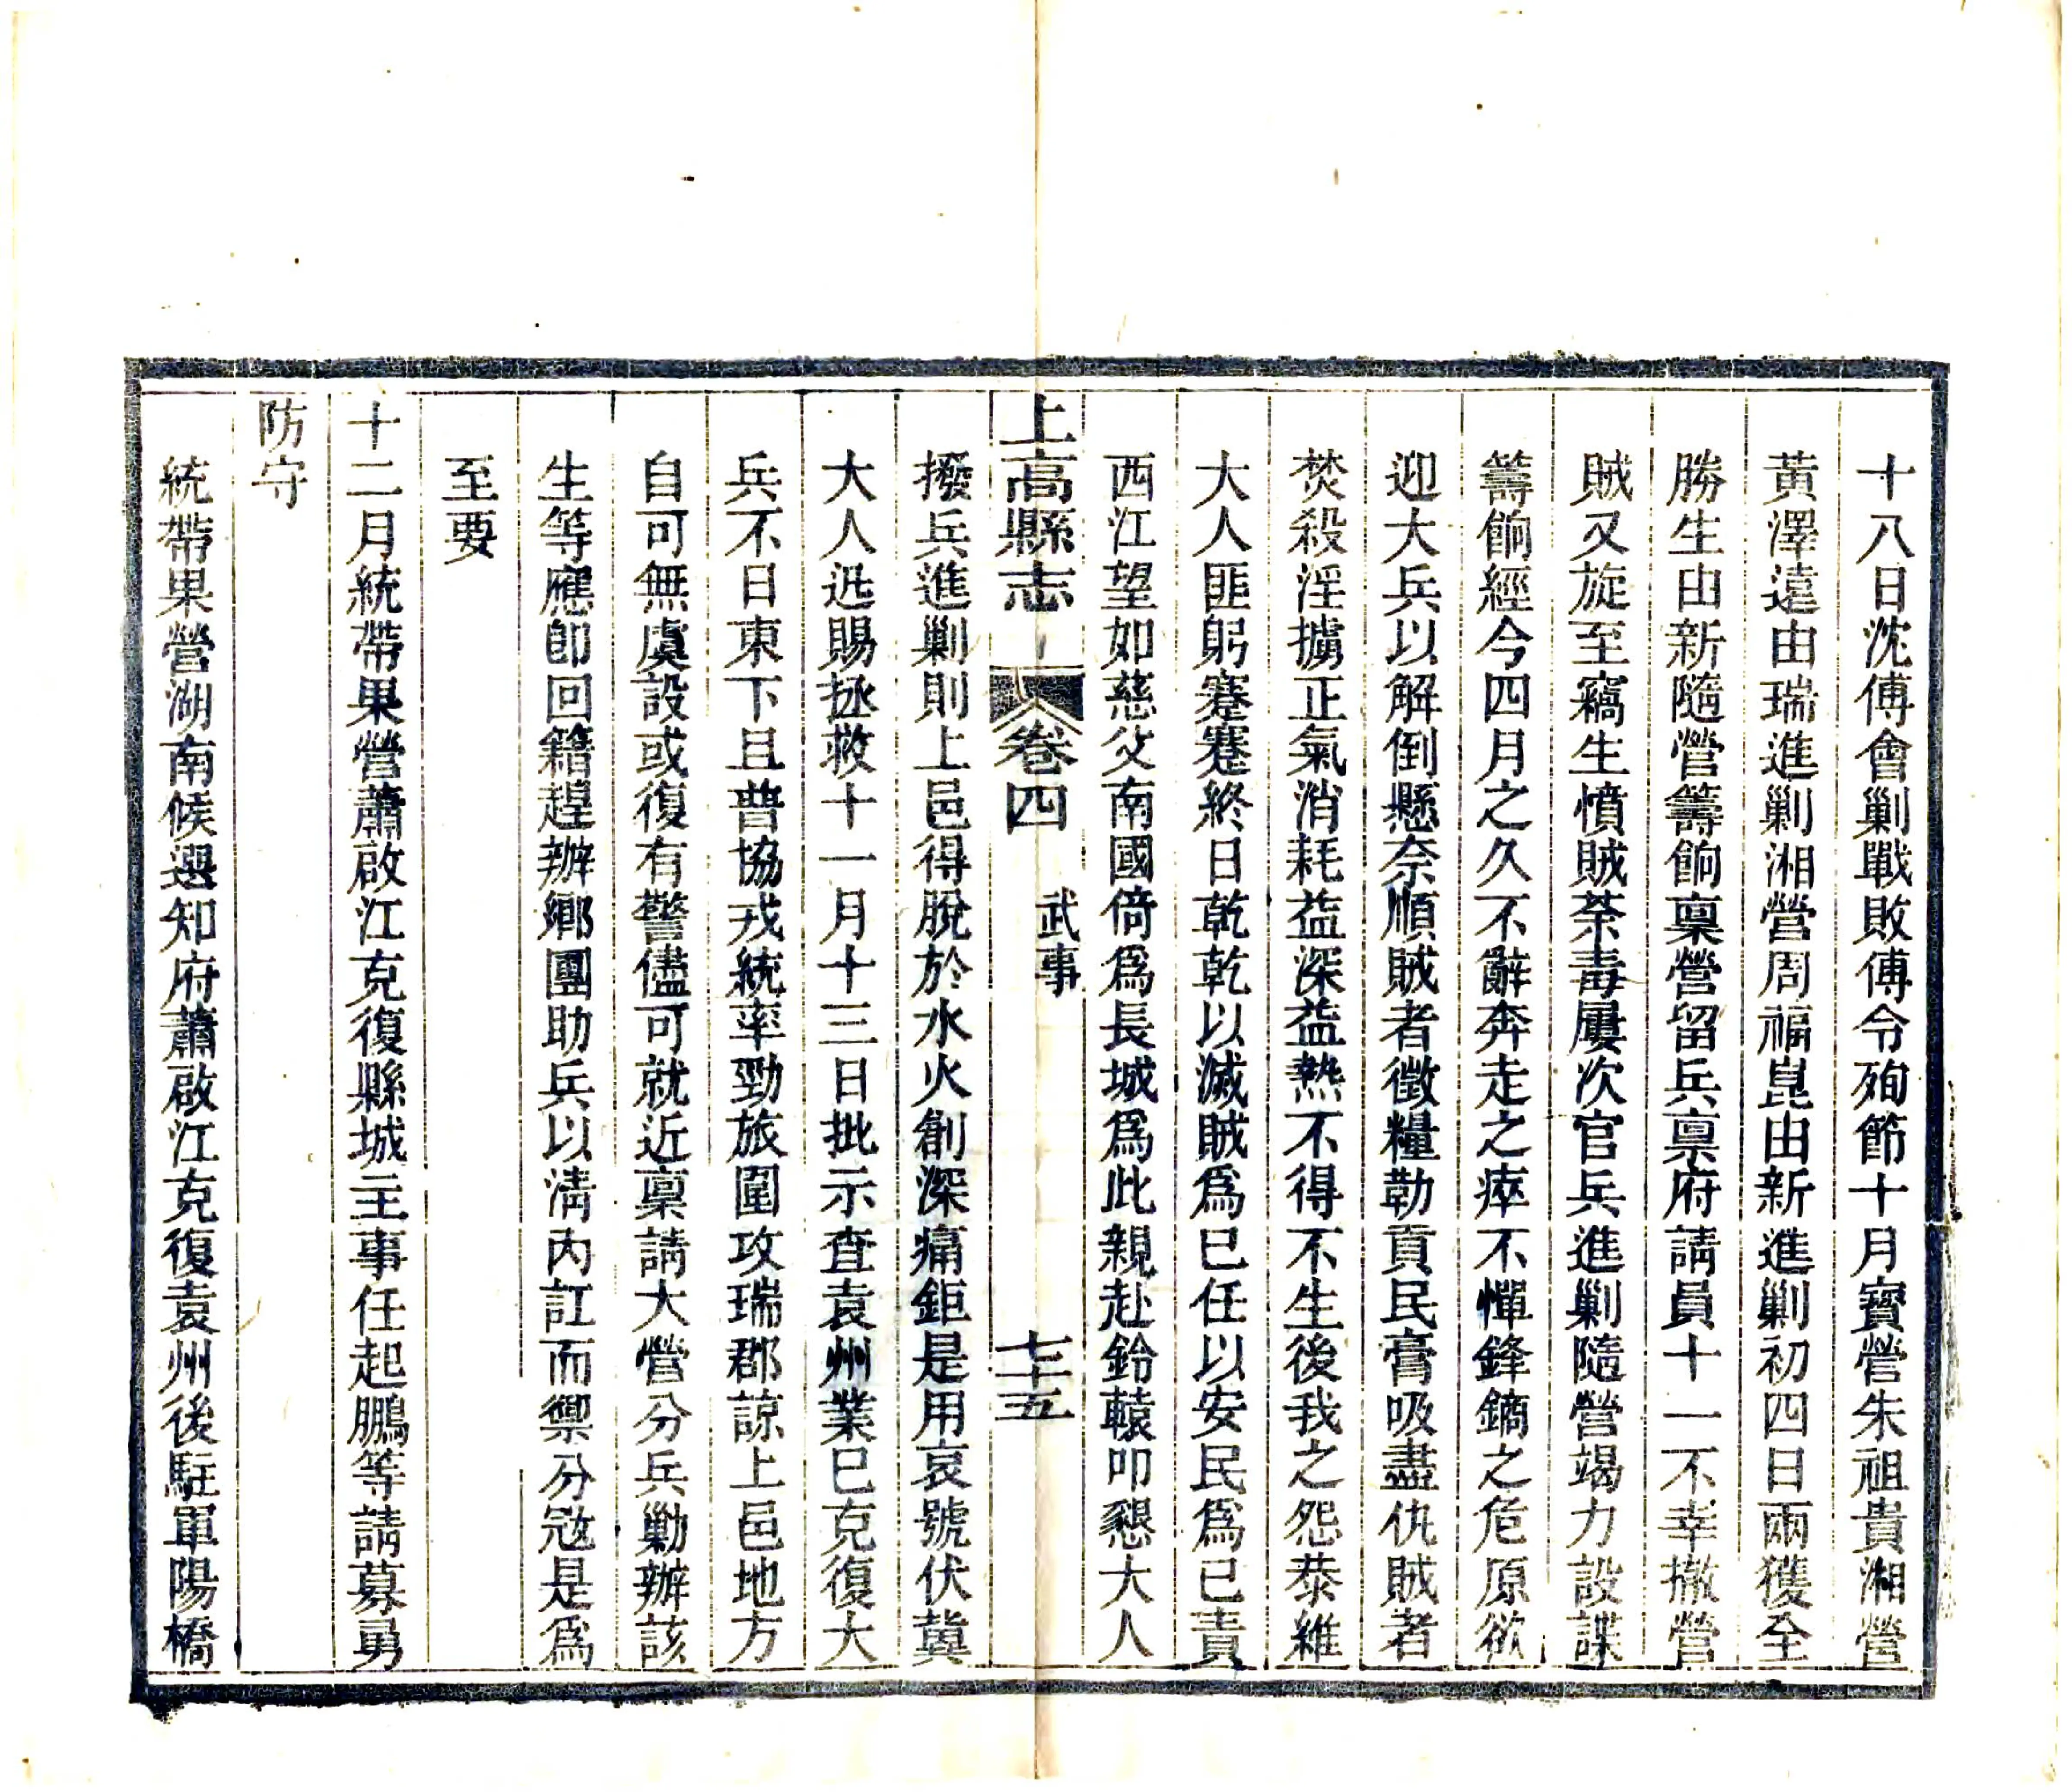 十八日沈傅會剿戰敗傅令殉節十月寶營朱祖貴湘營
黃澤遠由瑞進剿湘營周福崑由新進剿初四日兩獲全
勝生由新隨營籌餉稟營留兵稟府請員十一不幸撤營
賊又旋至竊生憤賊荼毒屢次官兵進剿隨營竭力設謀
籌餉經今四月之久不辭奔走之瘁不憚鋒鏑之危原欲
迎大兵以解倒懸奈順賊者徵糧勒貢民膏吸盡仇賊者
焚殺淫擄正氣消耗益深益熱不得不生後我之怨恭維
大人匪躬蹇蹇終日乾乾以滅賊爲己任以安民爲己責
西江望如慈父南國倚爲長城爲此親赴鈴轅叩懇大人
上高縣志 卷四 武事 七十五
撥兵進剿則上邑得脫於水火創深痛鉅是用哀號伏冀
大人迅賜拯救十一月十三日批示查袁州業已克復大
兵不日東下且普協戎統率勁旅圍攻瑞郡諒上邑地方
自可無虞設或復有警儘可就近稟請大營分兵勦辦該
生等應即回籍趕辦鄉團助兵以清內訌而禦外寇是爲
至要
十二月統帶果營蕭啟江克復縣城主事任起鵬等請募勇
防守
統帶果營湖南候選知府蕭啟江克復袁州後駐軍陽橋